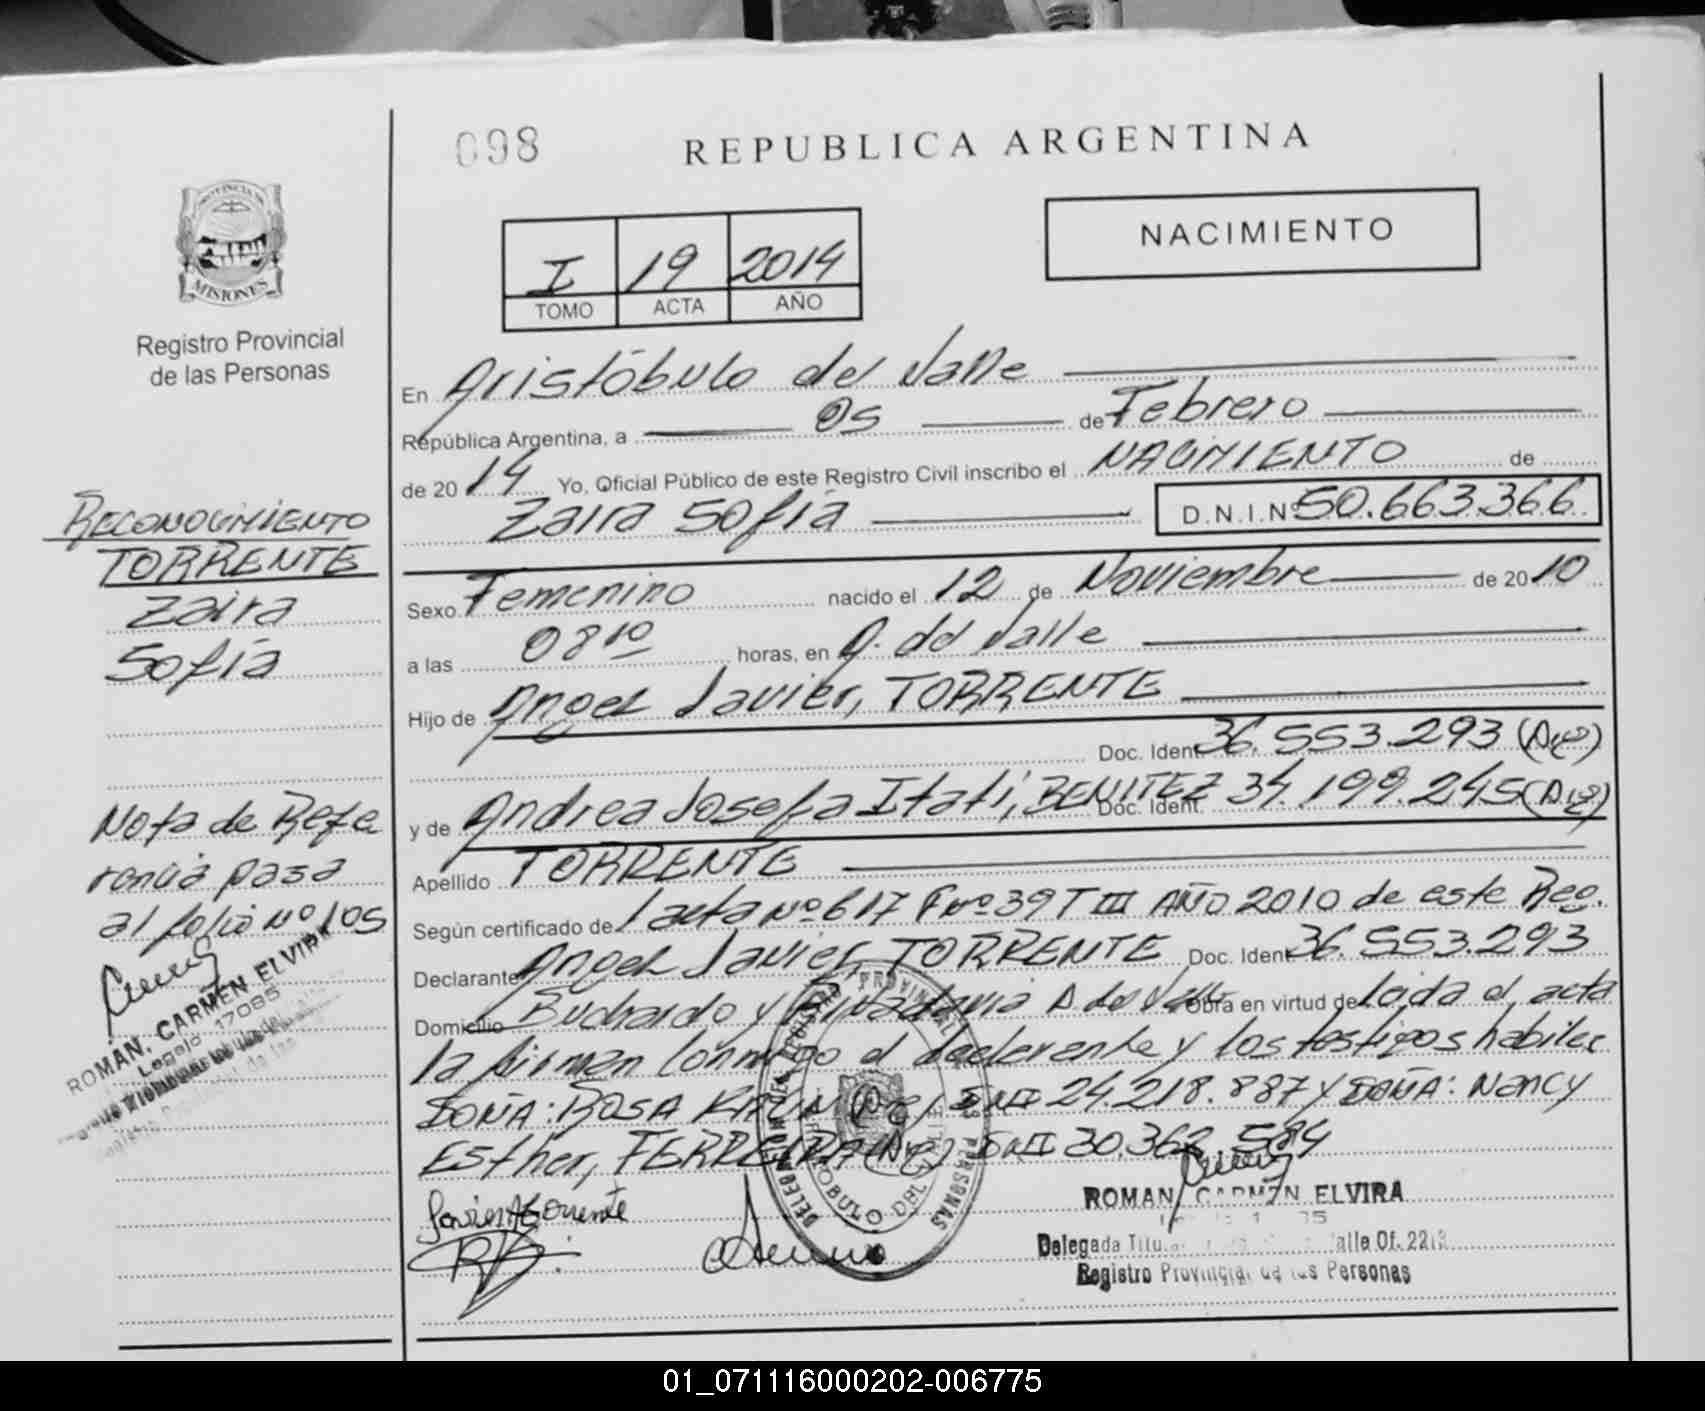 098
REPUBLICA ARGENTINA
PROVINCIA DE
MISIONES
Registro Provincial
de las Personas
NACIMIENTO
I 19 2014
TOMO ACTA AÑO
En Aristóbulo del Valle
República Argentina, a 05 de Febrero
de 2014 Yo, Oficial Público de este Registro Civil inscribo el NACIMIENTO de
Zaira Sofía D.N.I.Nº 50.663.366
Sexo Femenino nacido el 12 de Noviembre de 2010
a las 08 10 horas, en A. del Valle
Hijo de Angel Javier, TORRENTE
Doc. Ident. 36.553.293 (Arg)
y de Andrea Josefa Itatí, BENITEZ Doc. Ident. 34.199.245 (Arg)
Apellido TORRENTE
Según certificado de 1 acta Nº 617 Fº 39 T III AÑO 2010 de este Reg.
Declarante Angel Javier, TORRENTE Doc. Ident. 36.553.293
Domicilio Buchardo y Rivadavia A del Valle Obra en virtud de Leída el acta
la firman conmigo el declarante y los testigos habiles
DOÑA: ROSA DNI 24.218.887 y DOÑA: Nancy
Esther, FERREIRA (Arg) DNI 30.362.584
Javier A Torrente
ROMAN, CARMEN ELVIRA
Delegada Titular Valle Of. 2213
Registro Provincial de las Personas
RECONOCIMIENTO
TORRENTE
Zaira
Sofía
Nota de Refe
rencia pasa
al folio Nº 105
ROMAN, CARMEN ELVIRA
Legajo 17085
01_071116000202-006775